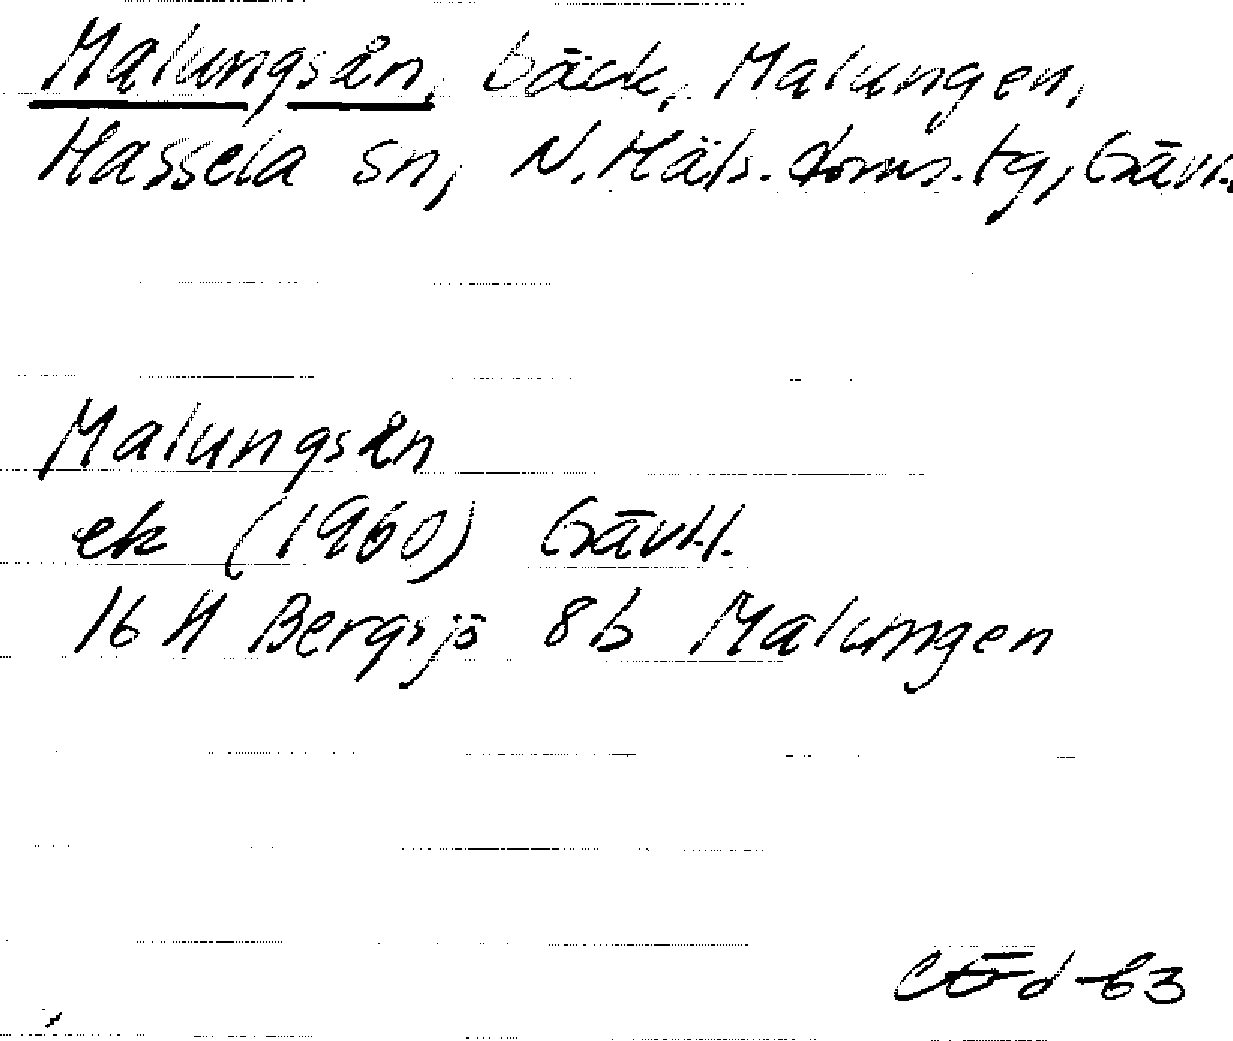 Malungsån, bäck, Malungen,
Hassela sn, N. Häls. doms. tg, Gävl.
Malungsån
ek (1960) Gävl.
16 H Bergsjö 8b Malungen
CÖd -63